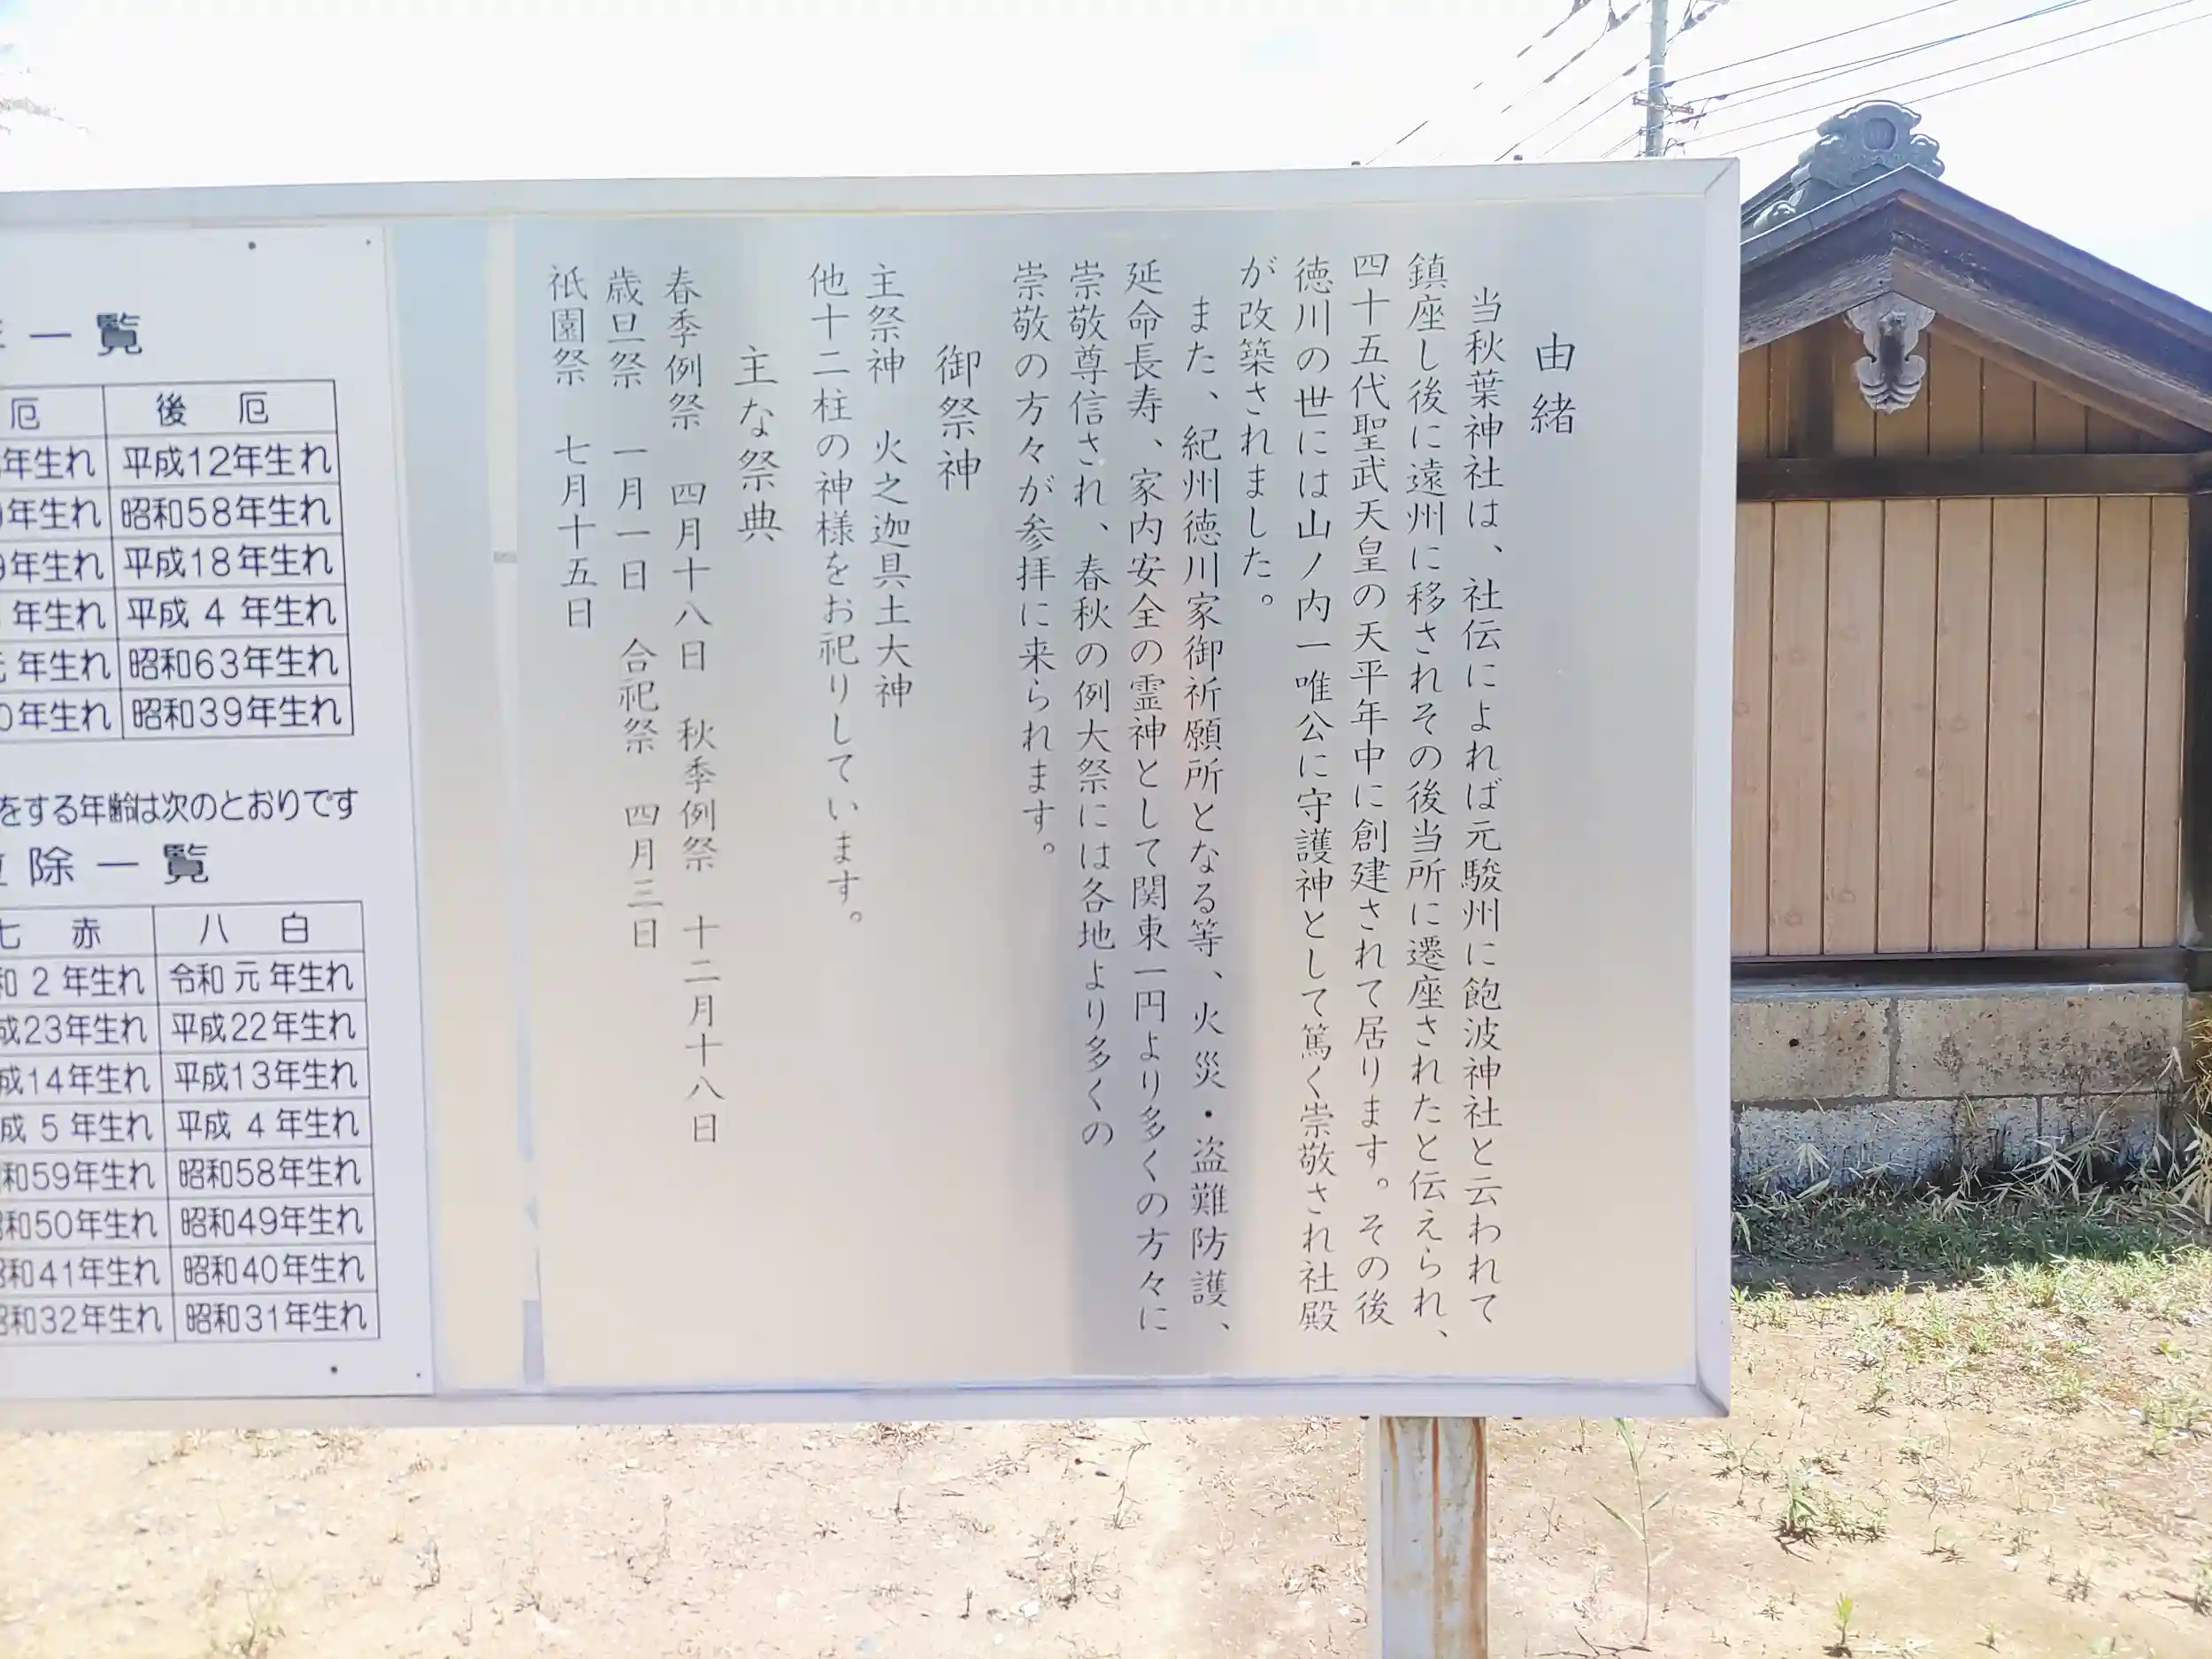 由緒
当秋葉神社は、社伝によれば元駿州に飽波神社と云われて
鎮座し後に遠州に移されその後当所に遷座されたと伝えられ、
四十五代聖武天皇の天平年中に創建されて居ります。その後
徳川の世には山ノ内一唯公に守護神として篤く崇敬され社殿
が改築されました。
また、紀州徳川家御祈願所となる等、火災・盗難防護、
延命長寿、家内安全の霊神として関東一円より多くの方々に
崇敬尊信され、春秋の例大祭には各地より多くの
崇敬の方々が参拝に来られます。
御祭神
主祭神 火之迦具土大神
他十二柱の神様をお祀りしています。
主な祭典
春季例祭 四月十八日 秋季例祭 十二月十八日
歳旦祭 一月一日 合祀祭 四月三日
祇園祭 七月十五日
一覧
厄 後厄
年生れ 平成12年生れ
年生れ 昭和58年生れ
9年生れ 平成18年生れ
年生れ 平成4年生れ
年生れ 昭和63年生れ
0年生れ 昭和39年生れ
をする年齢は次のとおりです
除一覧
七赤 八白
和2年生れ 令和元年生れ
成23年生れ 平成22年生れ
成14年生れ 平成13年生れ
成5年生れ 平成4年生れ
和59年生れ 昭和58年生れ
和50年生れ 昭和49年生れ
和41年生れ 昭和40年生れ
和32年生れ 昭和31年生れ